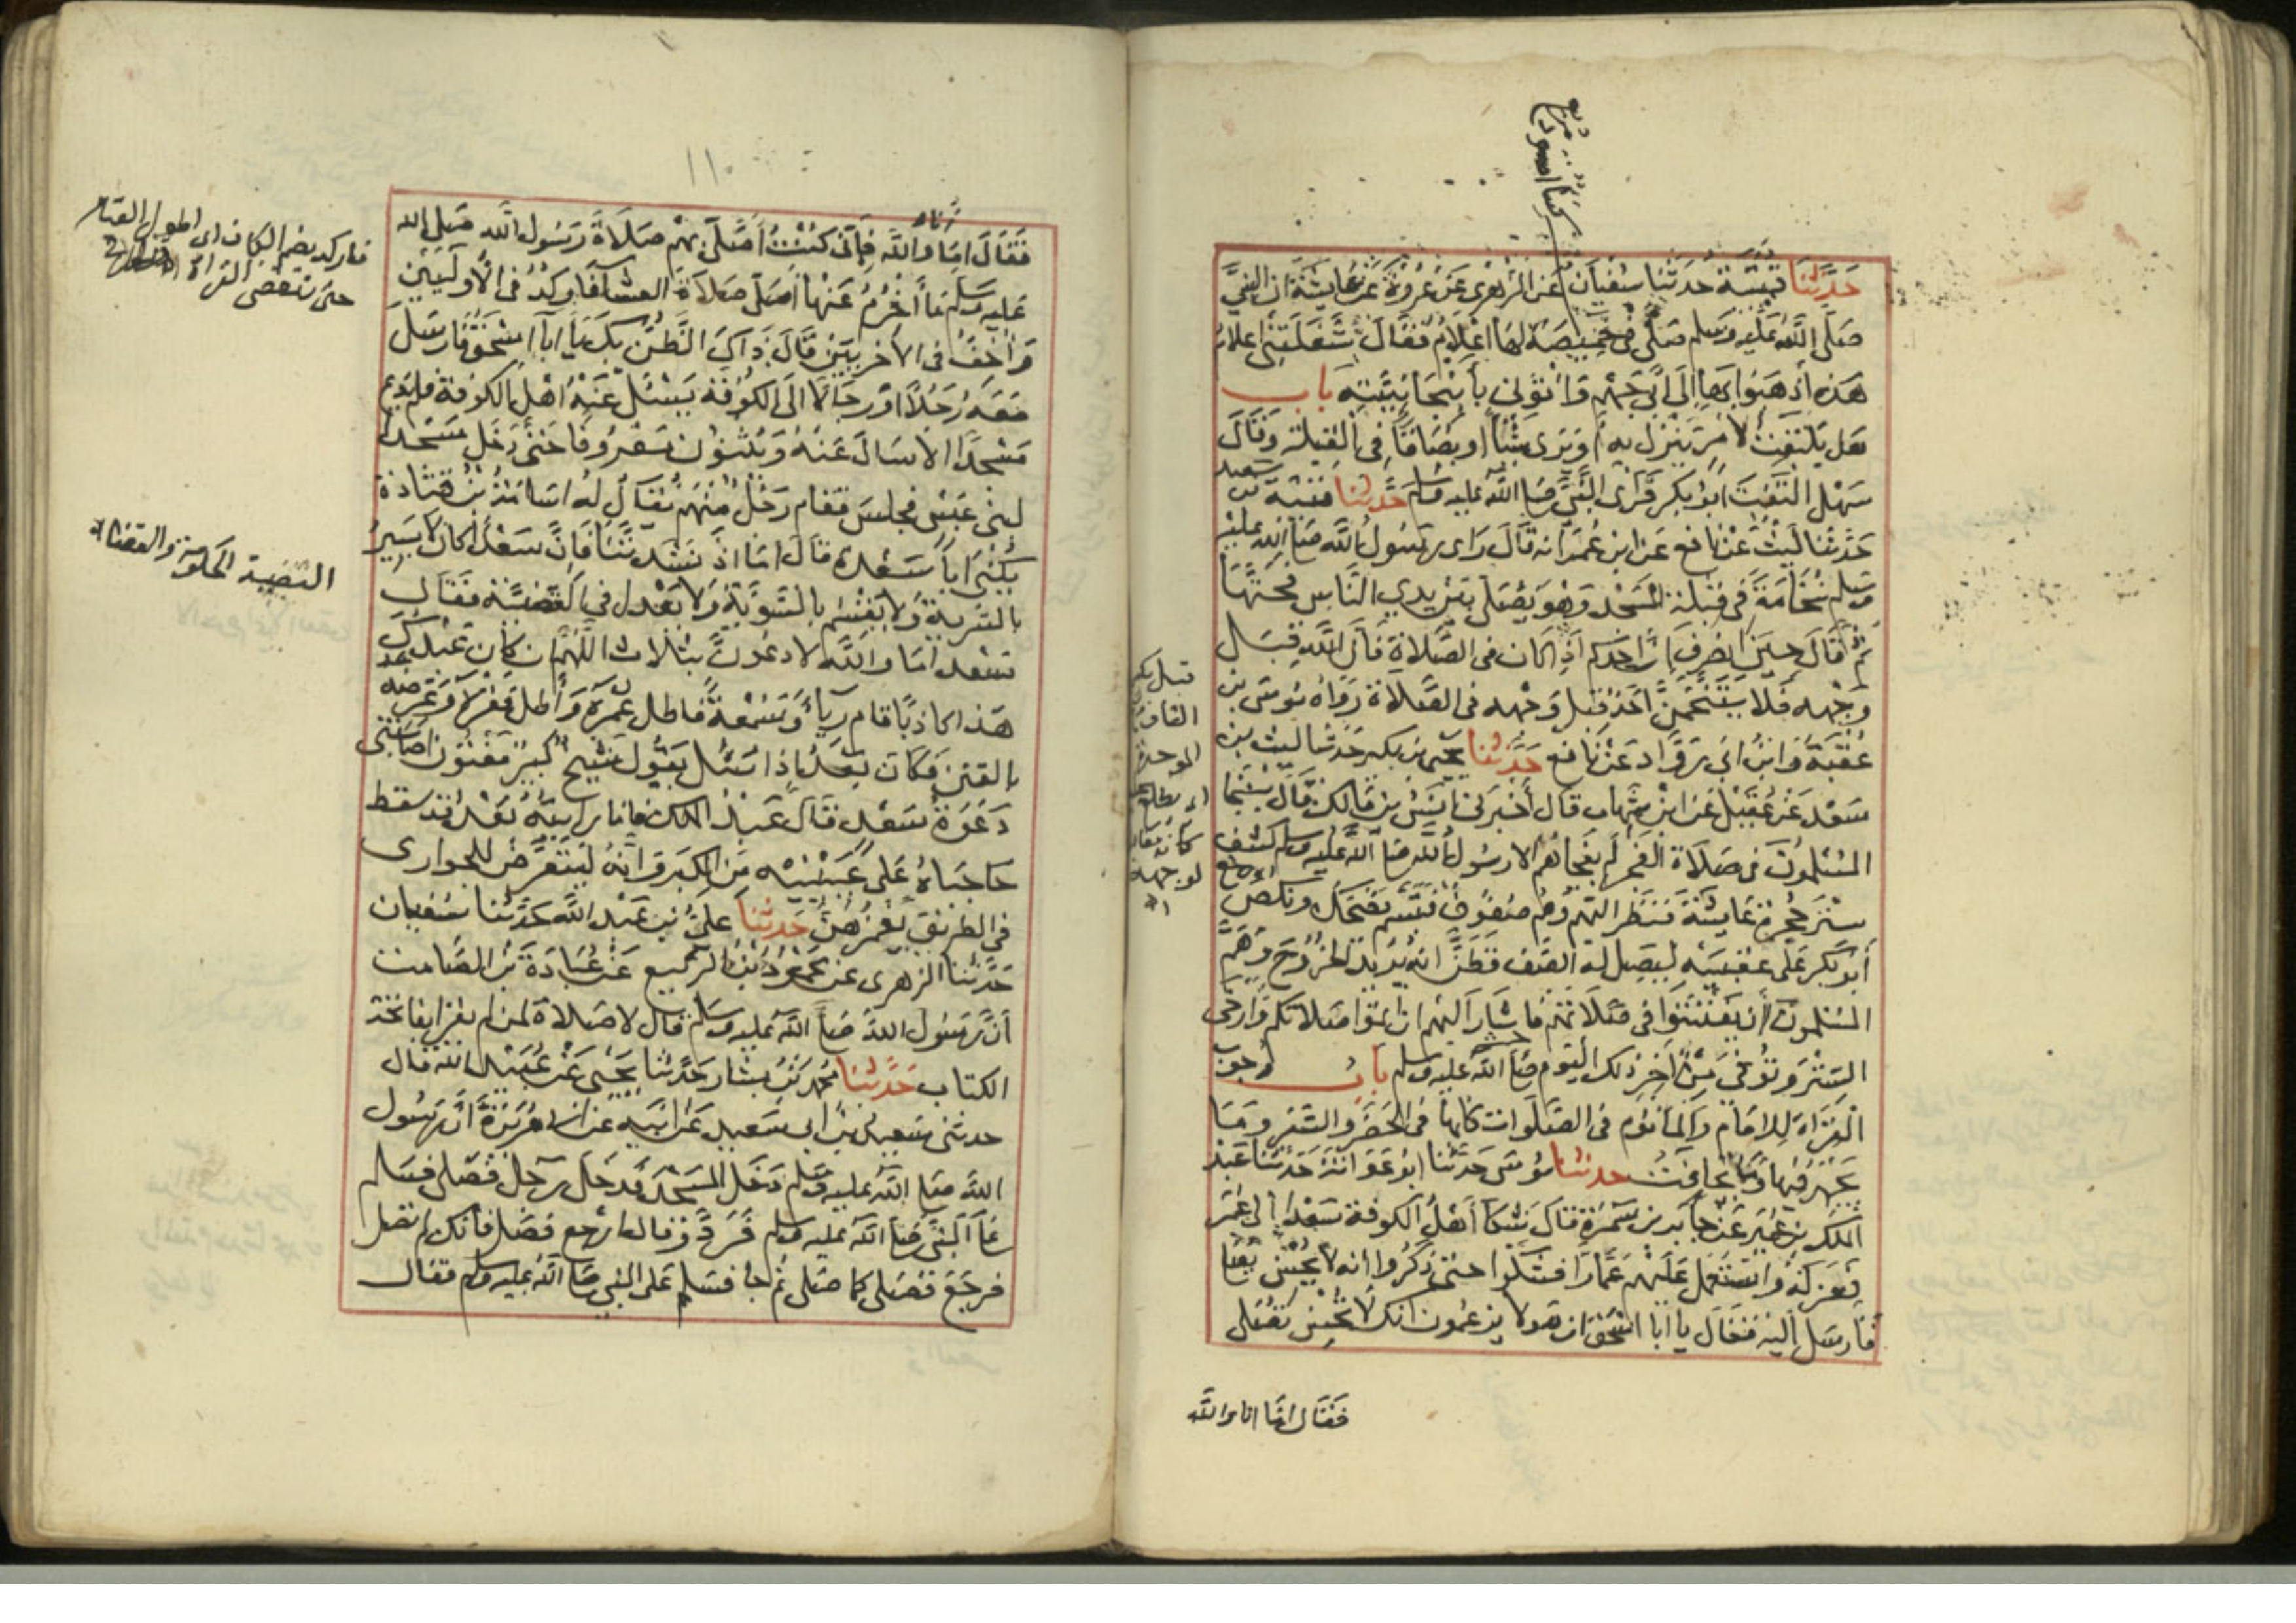 حَدَّثَنَا قتيبة حدثنا سفيان عن الزهري عن عروة عن عايشة ان النبي
صلى الله عليه وسلم صلى في خميصة لها اعلام فقال شغلتني اعلام
هذه اذهبوا بها الى ابي جهم واتوني بانبجانيته باب
هل يلتفت لامر ينزل به او يرى شيا او بصاقا في القبلة وقال
سهل التفت ابو بكر فراى النبي صلى الله عليه وسلم حدثنا قتيبة بن سعيد
حدثنا ليث عن نافع عن ابن عمر انه قال راى رسول الله صلى الله عليه
وسلم نخامة في قبلة المسجد وهو يصلي بين يدي الناس فحتها
ثم قال حين انصرف ان احدكم اذا كان في الصلاة فان الله قبل
وجهه فلا يتنخمن احد قبل وجهه في الصلاة رواه موسى بن
عقبة وابن ابي رواد عن نافع حدثنا يحيى بن بكير حدثنا ليث بن
سعد عن عقيل عن ابن شهاب قال اخبرني انس بن مالك قال بينما
المسلمون في صلاة الفجر لم يفجأهم الا رسول الله صلى الله عليه وسلم كشف
ستر حجرة عايشة فنظر اليهم وهم صفوف فتبسم يضحك ونكص
أبو بكر على عقبيه ليصل له الصف فظن انه يريد الخروج وهم
المسلمون أن يفتتنوا في صلاتهم فاشار اليهم ان اتموا صلاتكم وارخى
الستر وتوفي من آخر ذلك اليوم صلى الله عليه وسلم باب وجوب
القراة للامام والماموم في الصلوات كلها في الحضر والسفر وما
يجهر فيها وما يخافت حدثنا موسى حدثنا ابو عوانة حدثنا عبد
الملك بن عمير عن جابر بن سمرة قال شكا أهل الكوفة سعدا الى عمر
فعزله واستعمل عليهم عمارا فشكوا حتى ذكروا أنه لا يحسن يصلي
فأرسل اليه فقال يا ابا اسحق ان هولا يزعمون انك لا تحسن تصلي
فقال اما انا والله
قبل بكسر
القاف
الموحدة
لوجهه
١١٠
فقال اما انا والله فاني كنت أصلي بهم صلاة رسول الله صلى الله
عليه وسلم ما أخرم عنها أصلي صلاة العشا فاركد في الاوليين
واخف في الاخريين قال ذاك الظن بك يا ابا اسحق فارسل
معه رجلا او رجالا الى الكوفة يسئل عنه اهل الكوفة فلم يدع
مسجدا الا سال عنه ويثنون معروفا حتى دخل مسجدا
لبني عبس فجلس فقام رجل منهم يقال له اسامة بن قتادة
يكنى ابا سعدة قال اما اذ نشدتنا فان سعدا كان لا يسير
بالسرية ولا يقسم بالسوية ولا يعدل في القضية فقال
سعد اما والله لادعون بثلاث اللهم ان كان عبدك
هذا كاذبا قام رياء وسمعة فاطل عمره وأطل فقره وعرضه
بالفتن فكان بعد اذا سئل يقول شيخ كبير مفتون اصابتني
دعوة سعد قال عبد الملك فانا رايته بعد قد سقط
حاجباه على عينيه من الكبر وانه ليتعرض للجواري
في الطريق يغمزهن حدثنا علي بن عبد الله حدثنا سفيان
حدثنا الزهري عن محمود بن الربيع عن عبادة بن الصامت
أن رسول الله صلى الله عليه وسلم قال لا صلاة لمن لم يقرا بفاتحة
الكتاب حدثنا محمد بن بشار حدثنا يحيى عن عبيد الله قال
حدثني سعيد بن ابي سعيد عن ابيه عن ابي هريرة أن رسول
الله صلى الله عليه وسلم دخل المسجد فدخل رجل فصلى فسلم
على النبي صلى الله عليه وسلم فرد وقال ارجع فصل فانك لم تصل
فرجع فصلى كما صلى ثم جا فسلم على النبي صلى الله عليه وسلم فقال
فاركد بضم الكاف اي اطول القيام
حتى تنقضي القراة
القضية الحكومة والقضاء